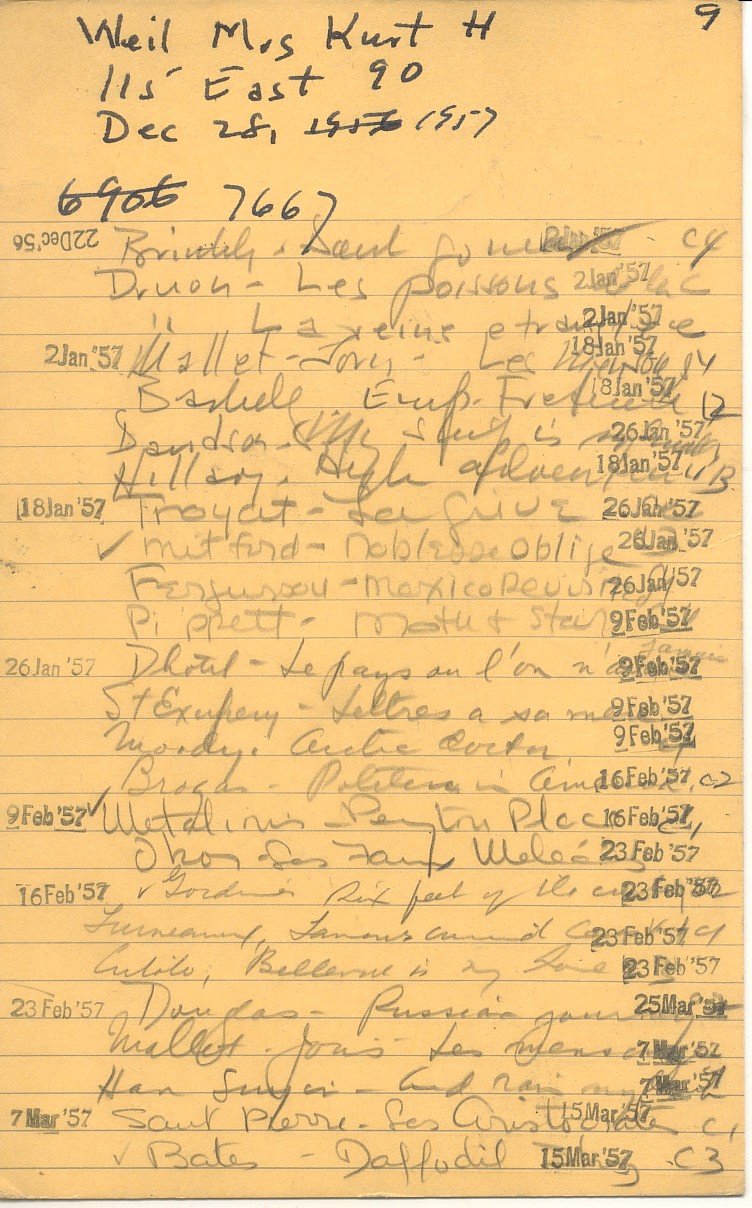 9
Weil Mrs Kurt H
115 East 90
Dec 28, 1956 1957
6906 7667
22Dec'56 Saint C4
Druon - Les poissons 2Jan'57
" La reine etran 2Jan'57
2Jan'57 Mallet-Joris - Les 18Jan'57
18Jan'57 12
Davidson - My is 26Jan'57
Hillary. High adventure 18Jan'57
18Jan'57 Troyat - La grive 26Jan'57
✓ Mitford - Noblesse oblige 26Jan'57
Fergusson - Mexico Revisited 26Jan'57
Pippett - Moth & Star 9Feb'57
jamais
26Jan'57 Dhotel - Le pays ou l'on n'a 9Feb'57
St Exupery - Lettres a sa m 9Feb'57
Moody. Arctic doctor 9Feb'57
Brogan - Politics in America 16Feb'57 C2
9Feb'57 ✓ Metalious - Peyton Place 16Feb'57
Les Faux 23Feb'57
16Feb'57 ✓ Gordimer Six feet of the 23Feb'57
Furneaux, Famous criminal 23Feb'57
Cutolo, Bellevue is my home 23Feb'57
23Feb'57 Douglas - Russian journey 25Mar'57
Mallet-Joris - Les mensonges 7Mar'57
Han Suyin - And rain my 7Mar'57
7Mar'57 Saint Pierre - Les Aristocrates 15Mar'57 C1
✓ Bates - Daffodil 15Mar'57 C3